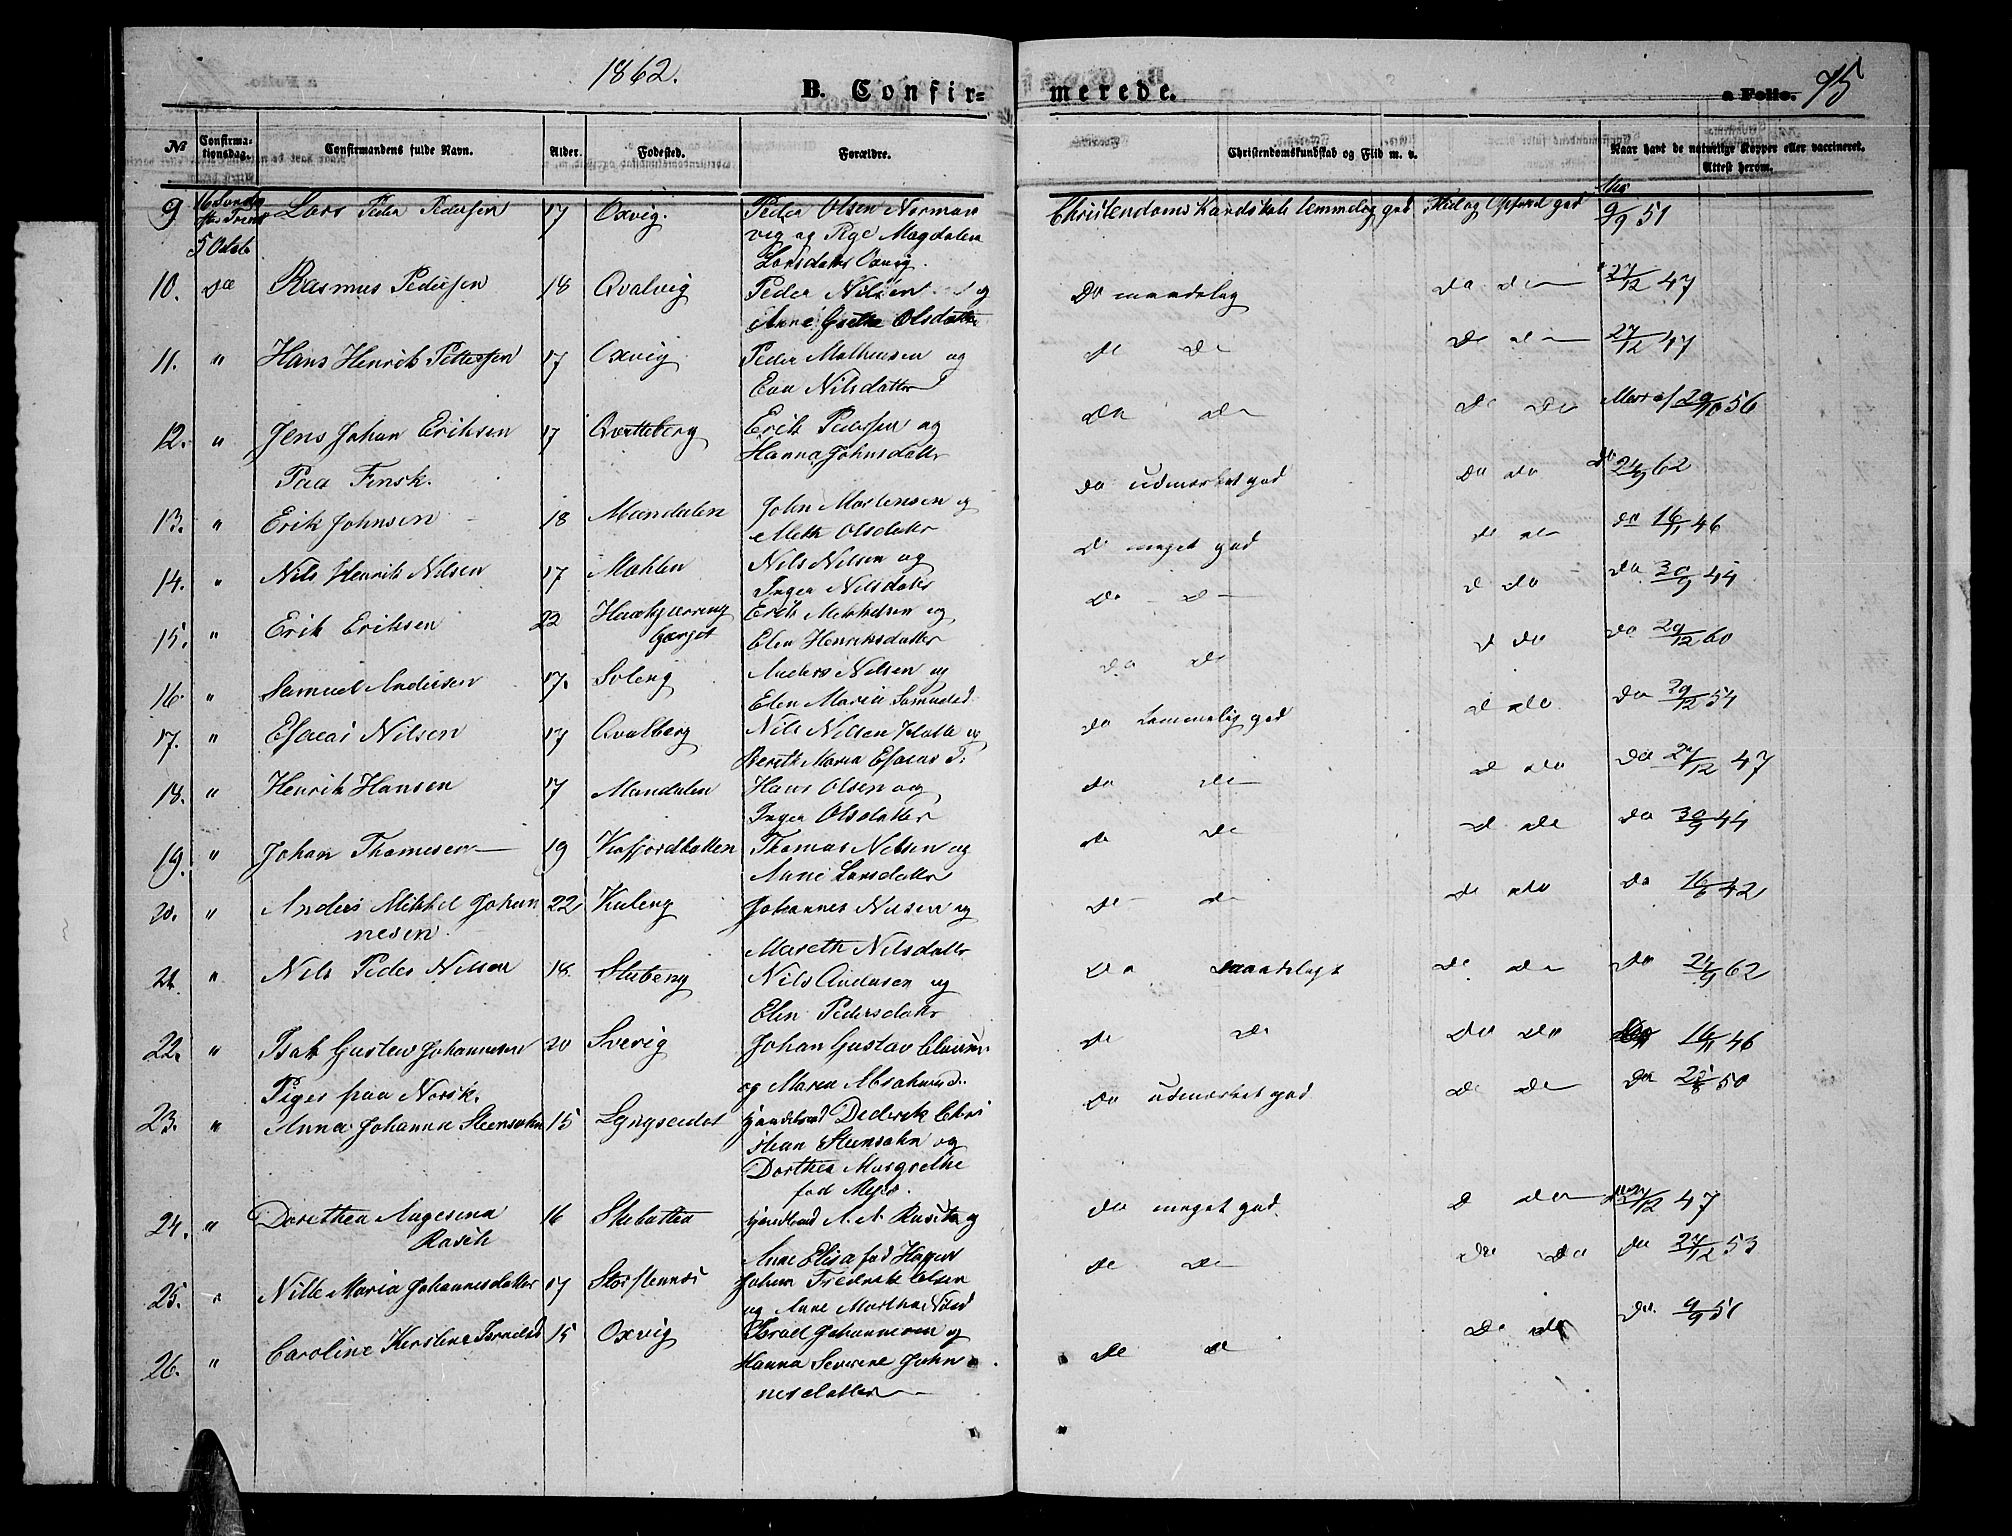 1862.
B. Confir=
merede.
a Folio. 75
№ Confirma-tionsdag. Confirmandens fulde Navn. Alder. Fødested. Forældre. Christendomskundskab og Flid m. v. Naar havt de naturlige Kopper eller vaccineret. Attest herom.
9 16 Lars Peder Pedersen 17 Oxvig. Peder Olsen Norman Christendoms Kundskab temmelig god Flid og Opførsel god 9/9 51
5 Octob vig og Pige Magdalena
Larsdatter Oxvig.
10. do Rasmus Pedersen 18 Qvalvig Peder Nilsen og Do maadelig do do 27/12 47
Anne Grethe Olsdatter
11. " Hans Henrik Pettersen 17 Oxvig Peder Mathiesen og do do do do 27/12 47
Eva Nilsdatter
12. " Jens Johan Eriksen 17 Erik Pedersen og do do do do 29/10 56
Paa Finsk. Hanna Johnsdatter
13. " Erik Johnsen 18 Mandalen John Mortensen og do udmærket god do do do 24/9 62
Meth Olsdatter
14. " Nils Henrik Nilsen 17 Mohlen Nils Nilsen og do meget god do do do 16/11 46
Inger Nilsdatter
15. " Erik Eriksen 22 Erik Mikkelsen og do do do do do 30/9 44
Elen Henriksdatter
16 " Samuel Andersen 17. Soleng Anders Nilsen og do do do do do 29/12 60
Elen Maria Samuelsd
17. " Esaias Nilsen 17 Qvalberg Nils Nilsen og do temmelig god do do do 29/12 54
Bereth Maria Esaias d.
18. " Henrik Hansen 17 Mandalen Hans Olsen og do do do do do 27/12 47
Inger Olsdatter
19. " Johan Thomesen 19 Kofjordbotten Thomas Nilsen og do do do do do 30/9 44
Anne Larsdatter
20. " Anders Mikkel Johan 22 Kuleng Johannes Nilsen og do do do do do 16/6 42
nesen. Mareth Nilsdatter
21. " Nils Peder Nilsen 18. Skuberg Nils Andersen og do maadeligt do do do 24/9 62
Elen Pedersdatter
22. " Isak Gustav Johannesen 20 Sverig Johan Gustav do do do do do 16/11 46
Piger paa Norsk. og Maria Abrahamsd.
23. " Anna Johanna Steensohn 15 Lyngseidet Handelsmd Dederik Chri do udmærket god do do do 50
stian Steensohn og
Dorthea Margrethe
fød Meyer.
24. " Dorethea Augesina 16 Skibotten Handelsmd A. A. Rasch og do meget god. do do 27/12 47
Rasch Anne Elisa fød Hagen
25. " Nille Maria Johannesdatter 17 Storstennes Johan Fredrik Olsen do do do do do 27/12 53
og Anne Martha Nilsd
26. " Caroline Kerstine Israelsd 15 Oxvig Israel Johannesen og do do do do do 9/9 51
Hanna Severine Johan
nesdatter